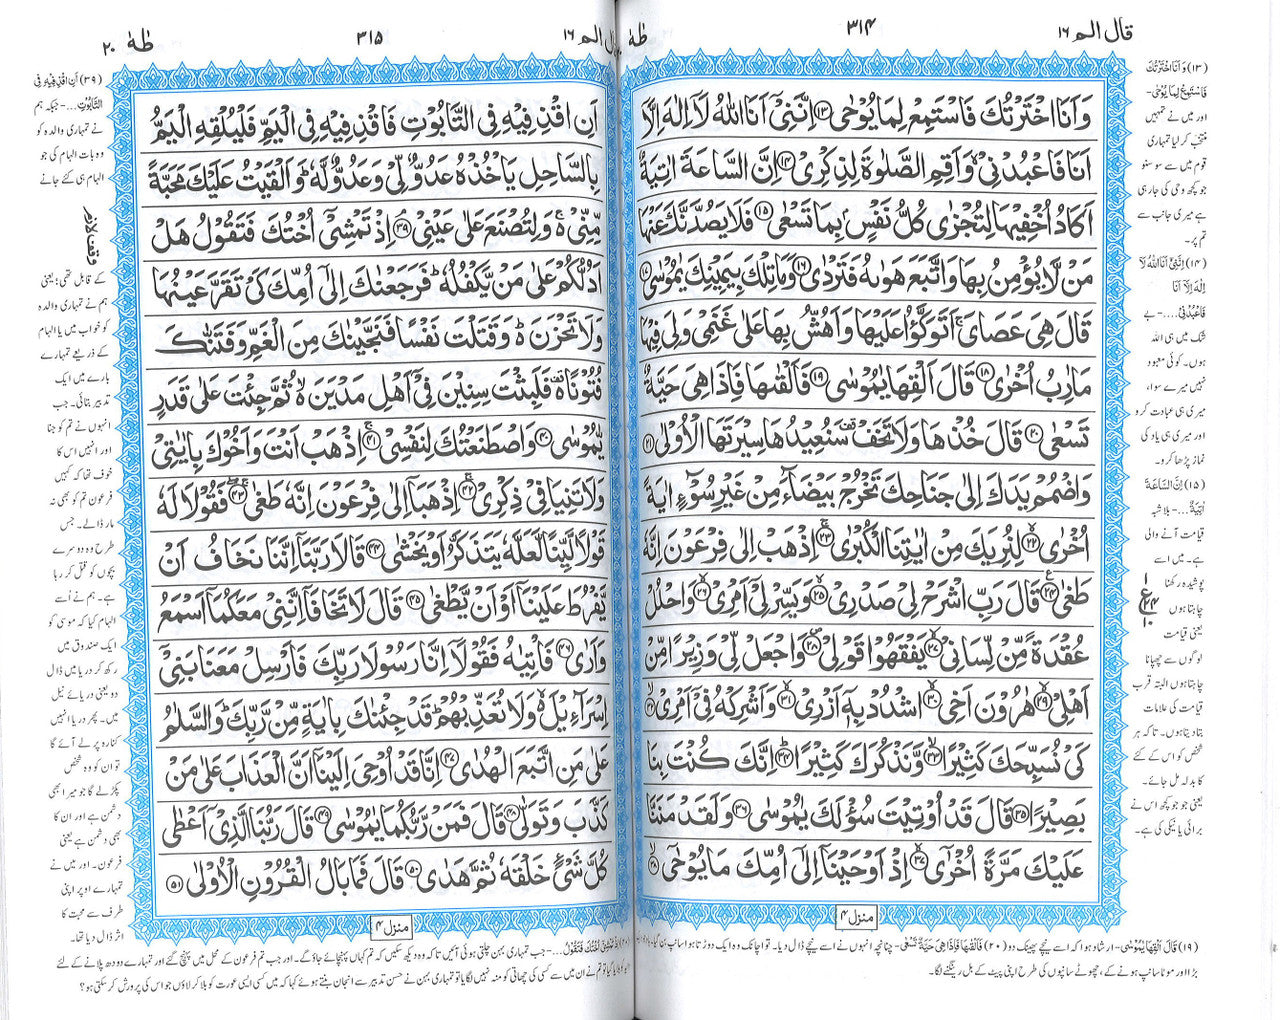 قال الم ١٦
٣١٤
طٰهٰ
وَاَنَا اخْتَرْتُكَ فَاسْتَمِعْ لِمَا يُوْحٰى ﴿۱۳﴾ اِنَّنِيْٓ اَنَا اللّٰهُ لَآ اِلٰهَ اِلَّآ
اَنَا فَاعْبُدْنِيْ ۙ وَاَقِمِ الصَّلٰوةَ لِذِكْرِيْ ﴿۱۴﴾ اِنَّ السَّاعَةَ اٰتِيَةٌ
اَكَادُ اُخْفِيْهَا لِتُجْزٰى كُلُّ نَفْسٍۭ بِمَا تَسْعٰى ﴿۱۵﴾ فَلَا يَصُدَّنَّكَ عَنْهَا
مَنْ لَّا يُؤْمِنُ بِهَا وَاتَّبَعَ هَوٰىهُ فَتَرْدٰى ﴿۱۶﴾ وَمَا تِلْكَ بِيَمِيْنِكَ يٰمُوْسٰى ﴿۱۷﴾
قَالَ هِيَ عَصَايَ ۚ اَتَوَكَّؤُا عَلَيْهَا وَاَهُشُّ بِهَا عَلٰى غَنَمِيْ وَلِيَ فِيْهَا
مَاٰرِبُ اُخْرٰى ﴿۱۸﴾ قَالَ اَلْقِهَا يٰمُوْسٰى ﴿۱۹﴾ فَاَلْقٰىهَا فَاِذَا هِيَ حَيَّةٌ
تَسْعٰى ﴿۲۰﴾ قَالَ خُذْهَا وَلَا تَخَفْ ۥ سَنُعِيْدُهَا سِيْرَتَهَا الْاُوْلٰى ﴿۲۱﴾
وَاضْمُمْ يَدَكَ اِلٰى جَنَاحِكَ تَخْرُجْ بَيْضَآءَ مِنْ غَيْرِ سُوْٓءٍ اٰيَةً
اُخْرٰى ﴿۲۲﴾ لِنُرِيَكَ مِنْ اٰيٰتِنَا الْكُبْرٰى ﴿۲۳﴾ اِذْهَبْ اِلٰى فِرْعَوْنَ اِنَّهٗ
طَغٰى ﴿۲۴﴾ قَالَ رَبِّ اشْرَحْ لِيْ صَدْرِيْ ﴿۲۵﴾ وَيَسِّرْ لِيْٓ اَمْرِيْ ﴿۲۶﴾ وَاحْلُلْ
عُقْدَةً مِّنْ لِّسَانِيْ ﴿۲۷﴾ يَفْقَهُوْا قَوْلِيْ ﴿۲۸﴾ وَاجْعَلْ لِّيْ وَزِيْرًا مِّنْ
اَهْلِيْ ﴿۲۹﴾ هٰرُوْنَ اَخِي ﴿۳۰﴾ اشْدُدْ بِهٖٓ اَزْرِيْ ﴿۳۱﴾ وَاَشْرِكْهُ فِيْٓ اَمْرِيْ ﴿۳۲﴾
كَيْ نُسَبِّحَكَ كَثِيْرًا ﴿۳۳﴾ وَّنَذْكُرَكَ كَثِيْرًا ﴿۳۴﴾ اِنَّكَ كُنْتَ بِنَا
بَصِيْرًا ﴿۳۵﴾ قَالَ قَدْ اُوْتِيْتَ سُؤْلَكَ يٰمُوْسٰى ﴿۳۶﴾ وَلَقَدْ مَنَنَّا
عَلَيْكَ مَرَّةً اُخْرٰٓى ﴿۳۷﴾ اِذْ اَوْحَيْنَآ اِلٰٓى اُمِّكَ مَا يُوْحٰٓى ﴿۳۸﴾
منزل ۴
(۱۳) وَاَنَا اخْتَرْتُكَ
فَاسْتَمِعْ لِمَا يُوْحٰى۔
اور میں نے تمہیں
منتخب کر لیا تمہاری
قوم میں سے سو سنو
جو کچھ وحی کی جا رہی
ہے میری جانب سے
تم پر۔
(۱۴) اِنَّنِيْٓ اَنَا اللّٰهُ لَآ
اِلٰهَ اِلَّآ اَنَا
فَاعْبُدْنِيْ ....۔ بے
شک میں ہی اللہ
ہوں۔ کوئی معبود
نہیں میرے سوا،
میری ہی عبادت کرو
اور میری ہی یاد کی
نماز پڑھا کرو۔
(۱۵) اِنَّ السَّاعَةَ
اٰتِيَةٌ ....۔ بلاشبہ
قیامت آنے والی
ہے۔ میں اسے
پوشیدہ رکھنا
چاہتا ہوں
یعنی قیامت
لوگوں سے چھپانا
چاہتا ہوں البتہ قرب
قیامت کی علامات
بتا دیتا ہوں۔ تاکہ ہر
شخص کو اس کے کئے
کا بدلہ مل جائے۔
یعنی جو جو کچھ اس نے
برائی یا نیکی کی ہے۔
(۱۹) قَالَ اَلْقِهَا يٰمُوْسٰى۔ ارشاد ہوا کہ اسے نیچے پھینک دو (۲۰) فَاَلْقٰىهَا فَاِذَا هِيَ حَيَّةٌ تَسْعٰى۔ چنانچہ انہوں نے اسے نیچے ڈال دیا۔ تو اچانک وہ ایک دوڑتا ہوا سانپ بن گیا۔
بڑا اور موٹا سانپ ہونے کے، چھوٹے سانپوں کی طرح اپنی پیٹ کے بل رینگنے لگا۔
قال الم ١٦
٣١٥
طٰهٰ ٢٠
اَنِ اقْذِفِيْهِ فِي التَّابُوْتِ فَاقْذِفِيْهِ فِي الْيَمِّ فَلْيُلْقِهِ الْيَمُّ
بِالسَّاحِلِ يَاْخُذْهُ عَدُوٌّ لِّيْ وَعَدُوٌّ لَّهٗ ؕ وَاَلْقَيْتُ عَلَيْكَ مَحَبَّةً
مِّنِّيْ ۚ۬ وَلِتُصْنَعَ عَلٰى عَيْنِيْ ﴿۳۹﴾ اِذْ تَمْشِيْٓ اُخْتُكَ فَتَقُوْلُ هَلْ
اَدُلُّكُمْ عَلٰى مَنْ يَّكْفُلُهٗ ؕ فَرَجَعْنٰكَ اِلٰٓى اُمِّكَ كَيْ تَقَرَّ عَيْنُهَا
وَلَا تَحْزَنَ ۬ؕ وَقَتَلْتَ نَفْسًا فَنَجَّيْنٰكَ مِنَ الْغَمِّ وَفَتَنّٰكَ
فُتُوْنًا ۬ فَلَبِثْتَ سِنِيْنَ فِيْٓ اَهْلِ مَدْيَنَ ۬ۙ ثُمَّ جِئْتَ عَلٰى قَدَرٍ
يّٰمُوْسٰى ﴿۴۰﴾ وَاصْطَنَعْتُكَ لِنَفْسِيْ ﴿۴۱﴾ اِذْهَبْ اَنْتَ وَاَخُوْكَ بِاٰيٰتِيْ
وَلَا تَنِيَا فِيْ ذِكْرِيْ ﴿۴۲﴾ اِذْهَبَآ اِلٰى فِرْعَوْنَ اِنَّهٗ طَغٰى ﴿۴۳﴾ فَقُوْلَا لَهٗ
قَوْلًا لَّيِّنًا لَّعَلَّهٗ يَتَذَكَّرُ اَوْ يَخْشٰى ﴿۴۴﴾ قَالَا رَبَّنَآ اِنَّنَا نَخَافُ اَنْ
يَّفْرُطَ عَلَيْنَآ اَوْ اَنْ يَّطْغٰى ﴿۴۵﴾ قَالَ لَا تَخَافَآ اِنَّنِيْ مَعَكُمَآ اَسْمَعُ
وَاَرٰى ﴿۴۶﴾ فَاْتِيٰهُ فَقُوْلَآ اِنَّا رَسُوْلَا رَبِّكَ فَاَرْسِلْ مَعَنَا بَنِيْٓ
اِسْرَآءِيْلَ ۬ۙ وَلَا تُعَذِّبْهُمْ ؕ قَدْ جِئْنٰكَ بِاٰيَةٍ مِّنْ رَّبِّكَ ؕ وَالسَّلٰمُ
عَلٰى مَنِ اتَّبَعَ الْهُدٰى ﴿۴۷﴾ اِنَّا قَدْ اُوْحِيَ اِلَيْنَآ اَنَّ الْعَذَابَ عَلٰى مَنْ
كَذَّبَ وَتَوَلّٰى ﴿۴۸﴾ قَالَ فَمَنْ رَّبُّكُمَا يٰمُوْسٰى ﴿۴۹﴾ قَالَ رَبُّنَا الَّذِيْٓ اَعْطٰى
كُلَّ شَيْءٍ خَلْقَهٗ ثُمَّ هَدٰى ﴿۵۰﴾ قَالَ فَمَا بَالُ الْقُرُوْنِ الْاُوْلٰى ﴿۵۱﴾
منزل ۴
(۳۹) اَنِ اقْذِفِيْهِ فِي
التَّابُوْتِ ....۔ جبکہ ہم
نے تمہاری والدہ کو
وہ بات الہام کی جو
الہام ہی کئے جانے
کے قابل تھی؛ یعنی
ہم نے تمہاری والدہ
کو خواب میں یا الہام
کے ذریعے تمہارے
بارے میں ایک
تدبیر بتائی۔ جب
انہوں نے تم کو جنا
اور انہیں اس کا
خوف تھا کہ کہیں
فرعون تم کو بھی نہ
مار ڈالے۔ جس
طرح وہ دوسرے
بچوں کو قتل کر رہا
ہے۔ ہم نے اُسے
الہام کیا کہ موسی کو
ایک صندوق میں
رکھ کر دریا میں ڈال
دو یعنی دریائے نیل
میں۔ پھر دریا انہیں
کنارہ پر لے آئے گا
تو ان کو وہ شخص
پکڑ لے گا جو میرا بھی
دشمن ہے اور ان کا
بھی دشمن ہے یعنی
فرعون۔ اور میں نے
تمہارے اوپر اپنی
طرف سے محبت کا
اثر ڈال دیا تھا۔
جب تمہاری بہن چلتی ہوئی آئیں تاکہ وہ دیکھ سکیں کہ تم کہاں پہنچائے جاؤ گے۔ اور جب تم فرعون کے محل میں پہنچ گئے اور تمہارے دودھ پلانے کے لئے
تم نے ان میں سے کسی کی چھاتی کو منہ نہیں لگایا تو تمہاری بہن نے حسن تدبیر سے انجان بنتے ہوئے کہا کہ میں کسی ایسی عورت کو بلا کر لاؤں جو اس کی پرورش کر سکتی ہو؟